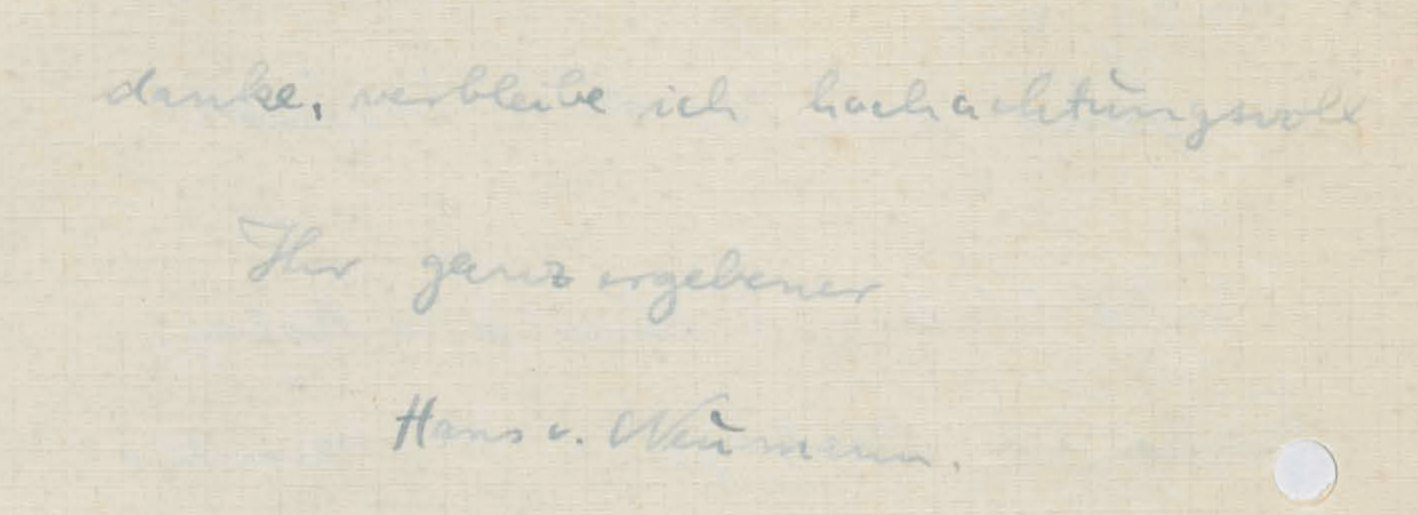 danke, verbleibe ich hochachtungsvoll
Ihr ganz ergebener
Hans v. Neumann.